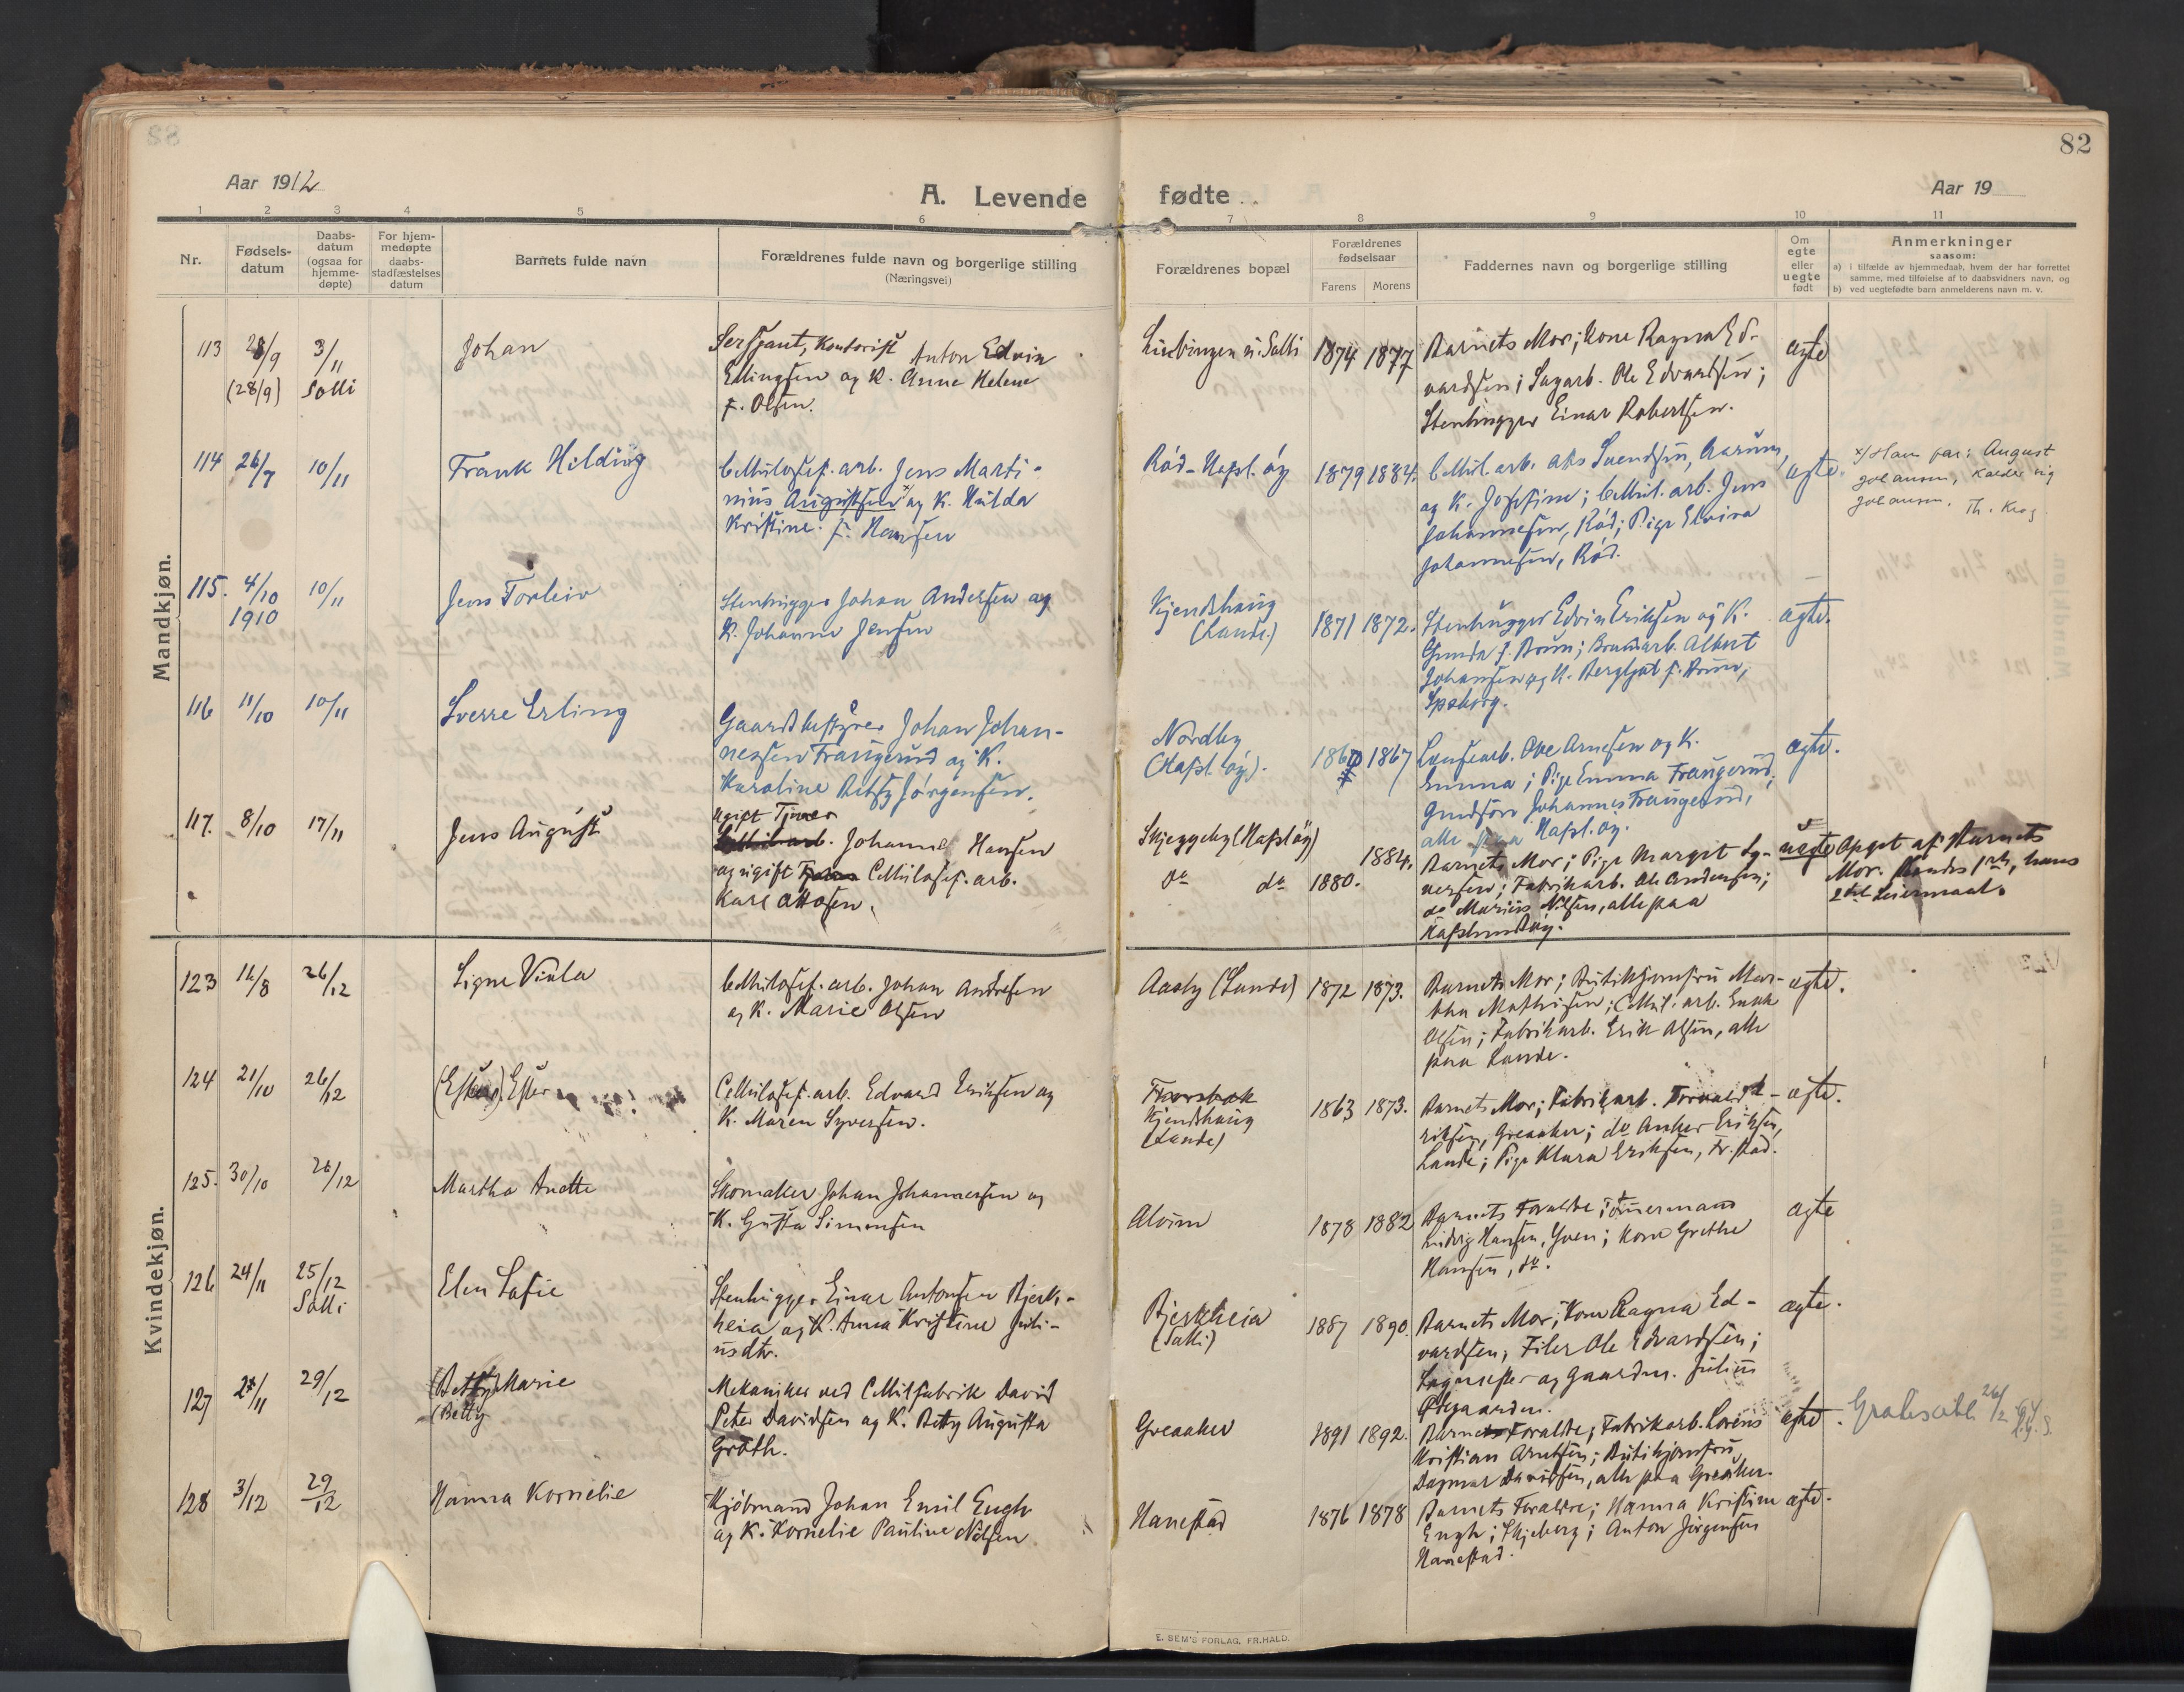 82
Aar 1912
A. Levende fødte
Aar 19
1 2 3 4 5 6 7 8 9 10 11
Nr.
Fødsels-
datum
Daabs-
datum
(ogsaa for
hjemme-
døpte)
For hjem-
medøpte
daabs-
stadfæstelses
datum
Barnets fulde navn
Forældrenes fulde navn og borgerlige stilling
(Næringsvei)
Forældrenes bopæl
Forældrenes
fødselsaar
Farens Morens
Faddernes navn og borgerlige stilling
Om
egte
eller
uegte
født
Anmerkninger
saasom:
a) i tilfælde av hjemmedaab, hvem der har forrettet
samme, med tilføielse af to daabsvidners navn, og
b) ved uegtefødte barn anmelderens navn m. v.
Mandkjøn.
113 28/9 3/11
(28/9) Solli
Johan
Sersjant, Kontorist Anton Edvin
Ellingsen og K. Anne Helene
f. Olsen.
Solli 1874 1877
Barnets Mor; Kone Ragna Ed-
vardsen; Sagarb. Ole Edvardsen;
Stenhugger Einar Robertsen.
ægte
114 26/7 10/11
Frank Hilding
Cellulosef. arb. Jens Marti-
nius Augustsen x) og K. Hulda
Kristine f. Hansen
Röd-Hafsl. öy 1879 1884.
Cellul. arb. Svendsen, Aarum,
og K. Josefine; Cellul. arb. Jens
Johannesen, Röd; Pige Elvira
Johannesen, Röd.
ægte.
x) Hans far: August
Johansen, kalder sig
Johansen. Th. Krog
115. 4/10 10/11
1910
Jens Torleiv
Stenhugger Johan Andersen og
K. Johanne Jensen
Kjendshaug
(Lande.)
1871 1872.
Stenhugger Edvin Eriksen og K.
Gunda f. Brun; Albert
Johansen og K. Bergljot f. Brun,
Spsborg.
ægte.
116 11/10 10/11
Sverre Erling
Gaardsbestyrer Johan Johan-
nessen Traugerud og K.
Karoline Betsy Jörgensen.
Nordby
(Hafsl. öy).
1867
Ole Arnesen og K.
Emma; Pige Emma Traugerud;
Johannes Traugerud,
alle paa Hafsl. öy.
ægte.
117. 8/10 17/11
Jens August
ugift Tjener
Johanne Hansen
og ugift Cellulosef. arb.
Karl Ottosen.
Skjeggeby (Hafsl öy)
do do 1880.
1884.
Barnets Mor; Pige Margit Sy-
versen; Fabrikarb. Ole Andersen;
do Marius Nilsen, alle paa
Hafslundöy.
uægte
Opgit af Barnets
Mor. Hendes 1ste, hans
2det Leiermaal.
Kvindekjøn.
123 16/8 26/12
Signe Viola
Cellulosef. arb. Johan Andersen
og K. Marie Olsen
Aasby (Lande) 1872 1873.
Barnets Mor; Butikjomfru Mar-
tha Mathisen; Cellul. arb.
Olsen; Fabrikarb. Erik Olsen, alle
paa Lande.
ægte.
124 21/10 26/12
Ester
Cellulosef. arb. Edvard Eriksen og
K. Maren Syversen.
Kjendshaug
(Lande)
1863 1873.
Barnets Mor; Fabrikarb. Torvald E-
riksen, Greaaker; do Anker Eriksen,
Lande; Pige Klara Eriksen, Fr. stad.
ægte.
125. 30/10 26/12
Martha Anette
Skomaker Johan Johannessen og
K. Gusta Simensen
Alvim
1878 1882
Barnets Forældre; Tömmermand
Ludvig Hansen, Yven; Kone Grethe
Hansen, do.
ægte
126 24/11 25/12
Solli
Elen Sofie
Stenhugger Einar Antonsen Bjerk-
heia og K. Anna Kristine Juli-
usdtr.
Bjerkheia
(Solli)
1887 1890.
Barnets Mor; Kone Ragna Ed-
vardsen; Filer Ole Edvardsen;
og Gaardm. Julius
Ödegaarden.
ægte.
127 29/12
(Betty) Marie
(Betty
Mekaniker ved Cellulfabrik David
Peter Davidsen og K. Betty Augusta
Gröth.
Greaaker
1891 1892.
Barnets Forældre; Fabrikarb. Lorens
Kristian Arntsen; Butikjomfru
Dagmar Davidsen, alle paa Greaaker.
ægte.
128 3/12 29/12
Hanna Kornelie
Kjöbmand Johan Emil Engh
og K. Kornelie Pauline Nilsen.
Hanestad
1876 1878
Barnets Forældre; Hanna Kristine
Engh; Skjeberg; Anton Jörgensen
Hanestad.
ægte.
E. SEM'S FORLAG, FR.HALD.